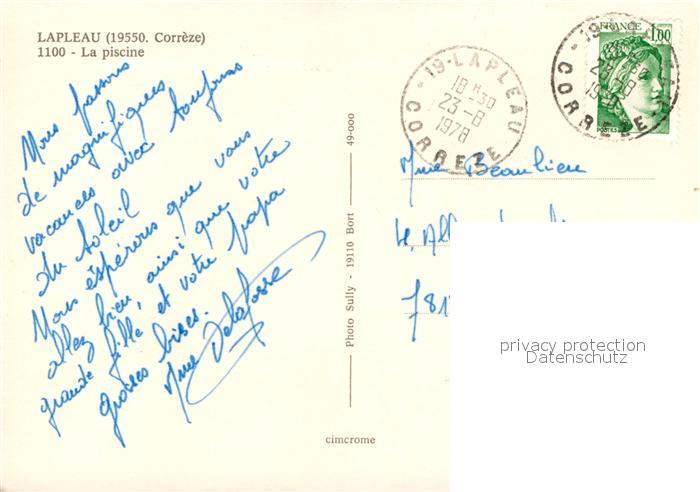 LAPLEAU (19550. Corrèze)
1100 - La piscine
Nous passons
de magnifiques
vacances avec toujours
du soleil
Nous espérons que vous
allez bien, ainsi que votre
grande fille et votre papa
grosses bises.
Mme Delafosse
49-000
Photo Sully - 19110 Bort
cimcrome
19-LAPLEAU
18 H 30
23-8
1978
CORREZE
FRANCE
1,00
POSTES
19-LAPLEAU
18 H 30
23-8
1978
CORREZE
Mme Beaulieu
4, All
781
privacy protection
Datenschutz